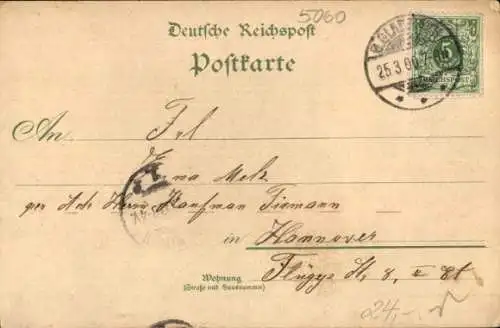 5060
Deutsche Reichspost
Postkarte
M. GLADBACH
25.3.00.7
5
REICHSPOST
An Frl
Erna Melz
per Adr Herrn Kaufman Tiemann
in Hannover
Wohnung Flügge St, 8, II Et
(Straße und Hausnummer)
24,-